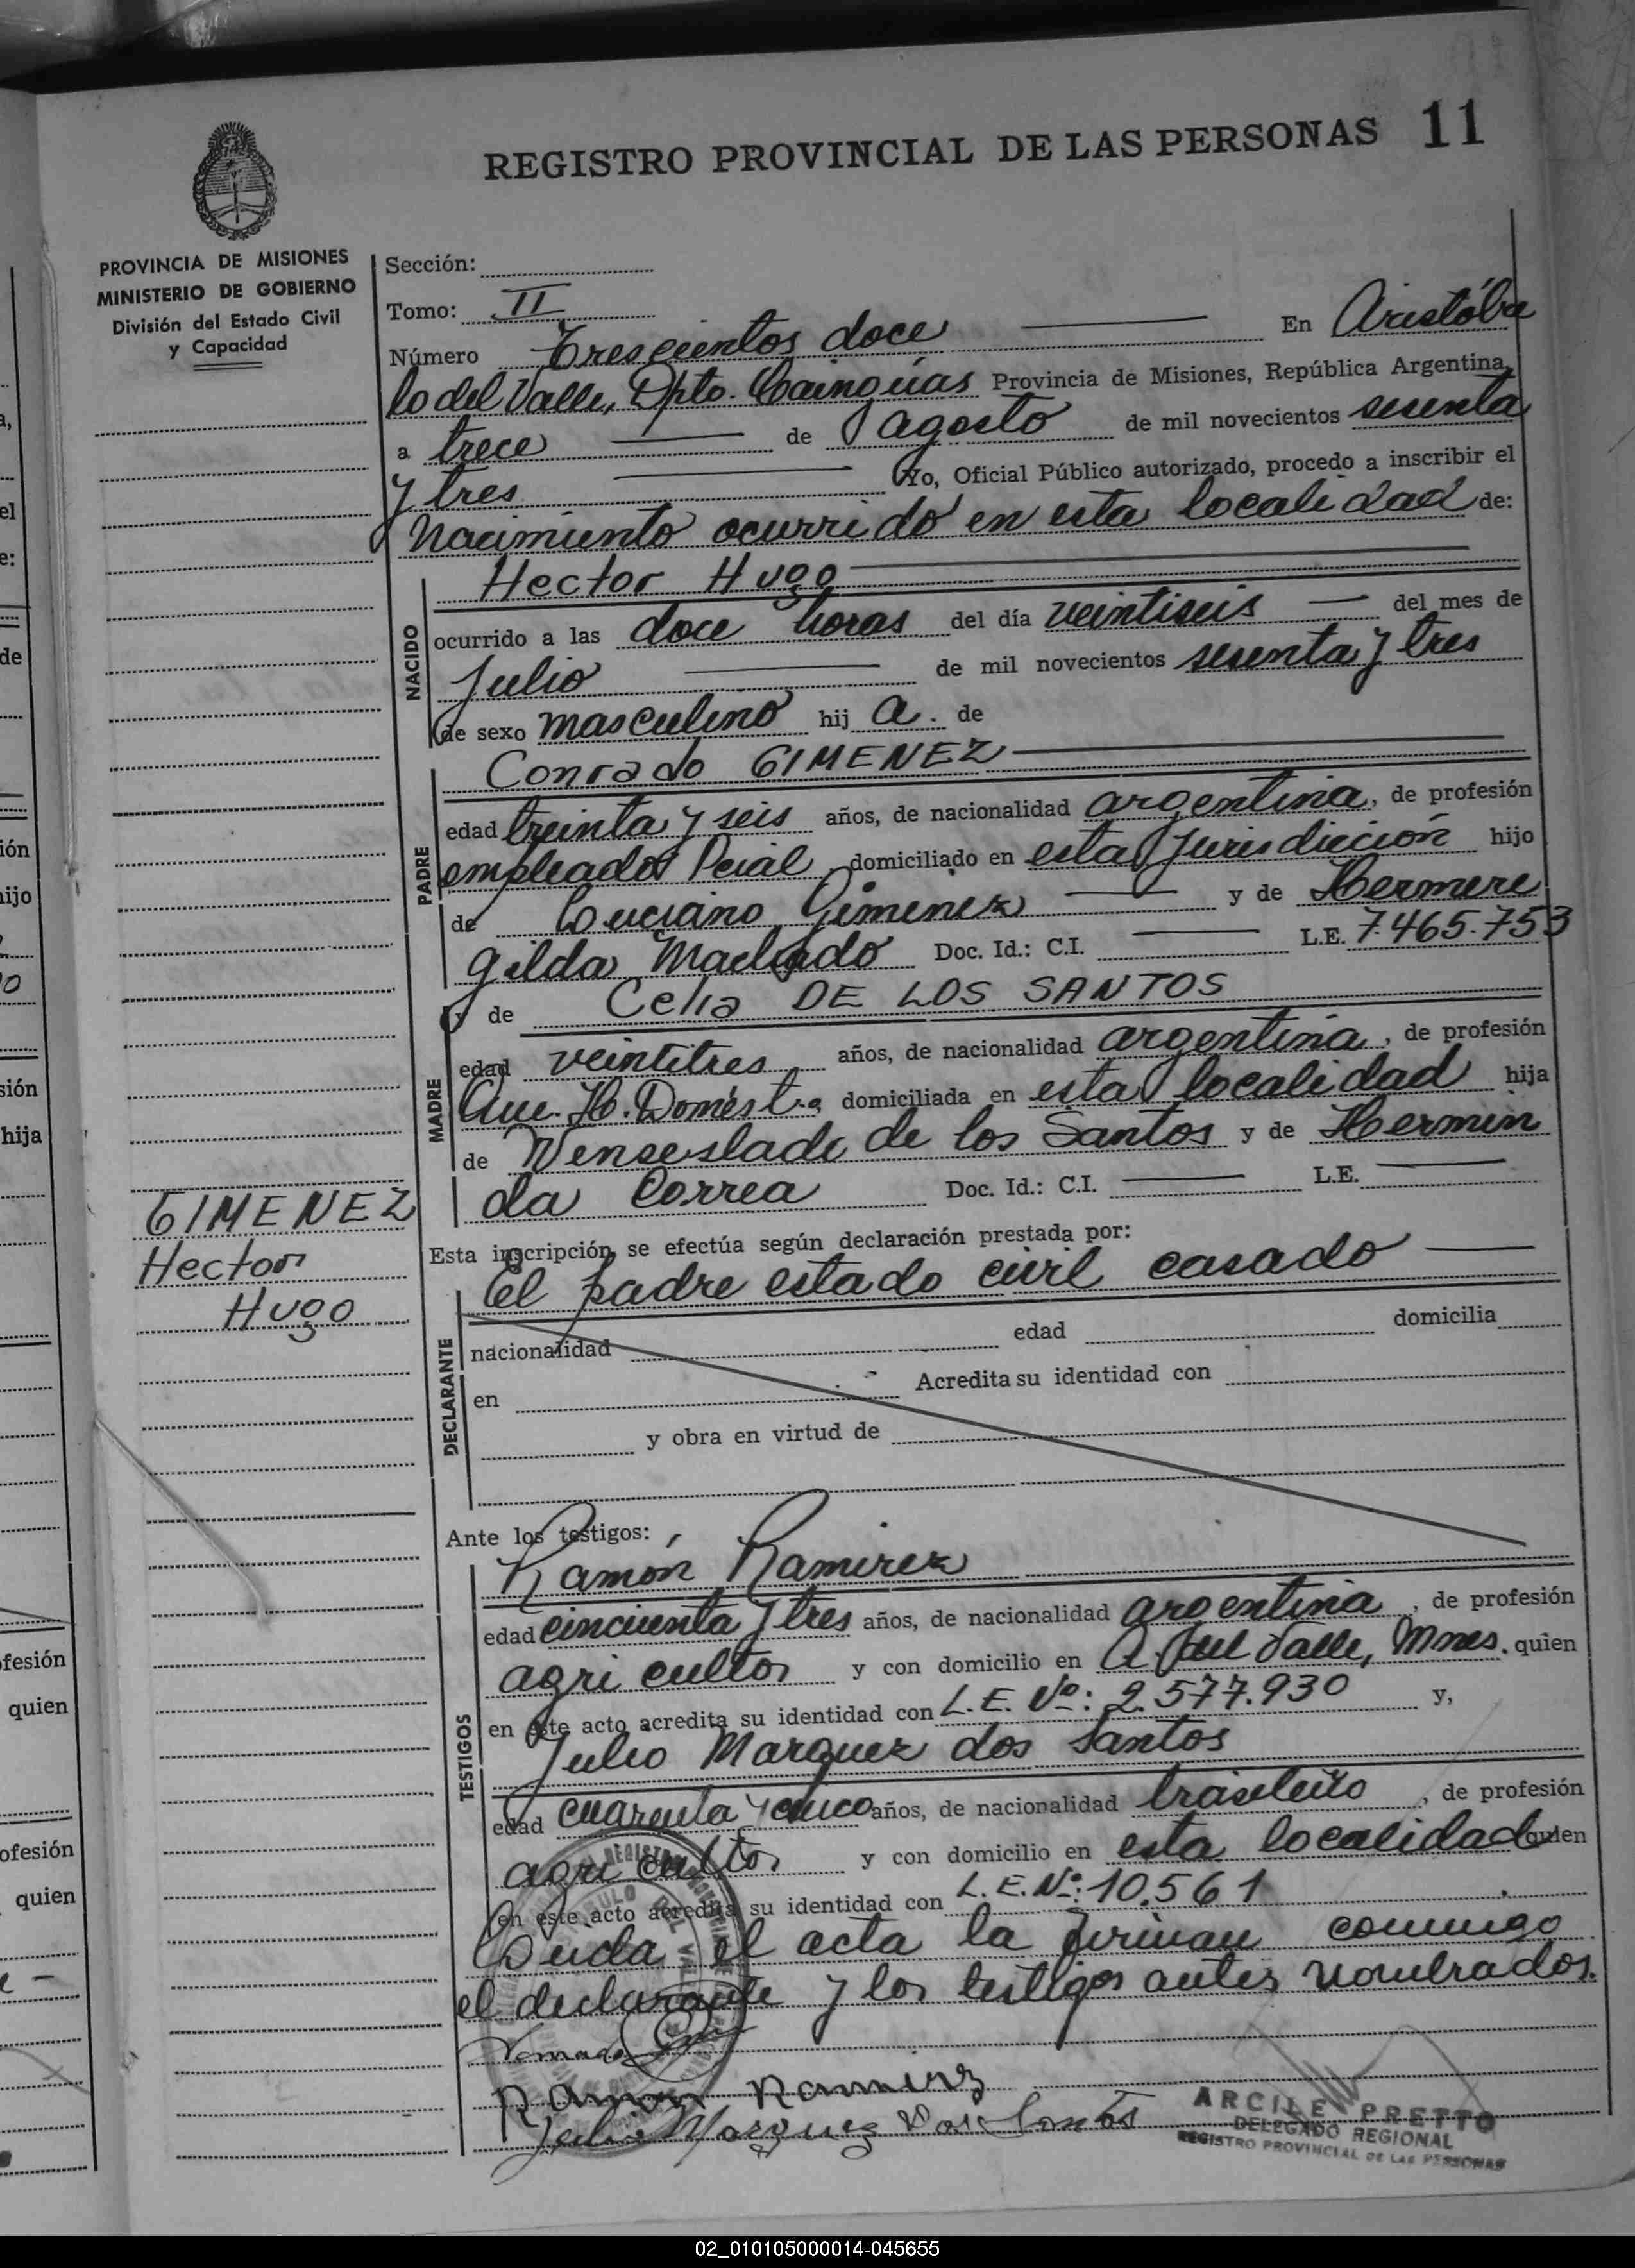 REGISTRO PROVINCIAL DE LAS PERSONAS 11
PROVINCIA DE MISIONES
MINISTERIO DE GOBIERNO
División del Estado Civil
y Capacidad
Sección:
Tomo: II
Número Trescientos doce En Aristóbu
lo del Valle, Dpto. Cainguas Provincia de Misiones, República Argentina,
a trece de agosto de mil novecientos sesenta
y tres Yo, Oficial Público autorizado, procedo a inscribir el
Nacimiento ocurrido en esta localidad de:
NACIDO
Hector Hugo
ocurrido a las doce horas del día veintiseis del mes de
Julio de mil novecientos sesenta y tres
de sexo masculino hij a. de
PADRE
Conrado GIMENEZ
edad treinta y seis años, de nacionalidad argentina, de profesión
empleado Pcial domiciliado en esta Jurisdicción hijo
de Luciano Gimenez y de Hermere
gilda Machado Doc. Id.: C.I. L.E. 7.465.753
MADRE
y de Celia DE LOS SANTOS
edad veintitres años, de nacionalidad argentina, de profesión
Que. H. Domést. domiciliada en esta localidad hija
de Wenseslade de los Santos y de Hermin
da Correa Doc. Id.: C.I. L.E.
GIMENEZ
Hector
Hugo
Esta inscripción se efectúa según declaración prestada por:
El padre estado civil casado
DECLARANTE
nacionalidad edad domicilia
en Acredita su identidad con
y obra en virtud de
Ante los testigos:
TESTIGOS
Ramón Ramirez
edad cincuenta y tres años, de nacionalidad argentina, de profesión
agricultor y con domicilio en A. del Valle, Mnes. quien
en este acto acredita su identidad con L.E. Nº: 2.577.930 y,
Julio Marquez dos Santos
edad cuarenta y cinco años, de nacionalidad brasileño, de profesión
agricultor y con domicilio en esta localidad quien
en este acto acredita su identidad con L.E. Nº: 10.561
Leida el acta la firman conmigo
el declarante y los testigos antes nombrados.
Ramon Ramirez
Julio Marquez Dos Santos
ARCILE PRETTO
DELEGADO REGIONAL
REGISTRO PROVINCIAL DE LAS PERSONAS
02_010105000014-045655